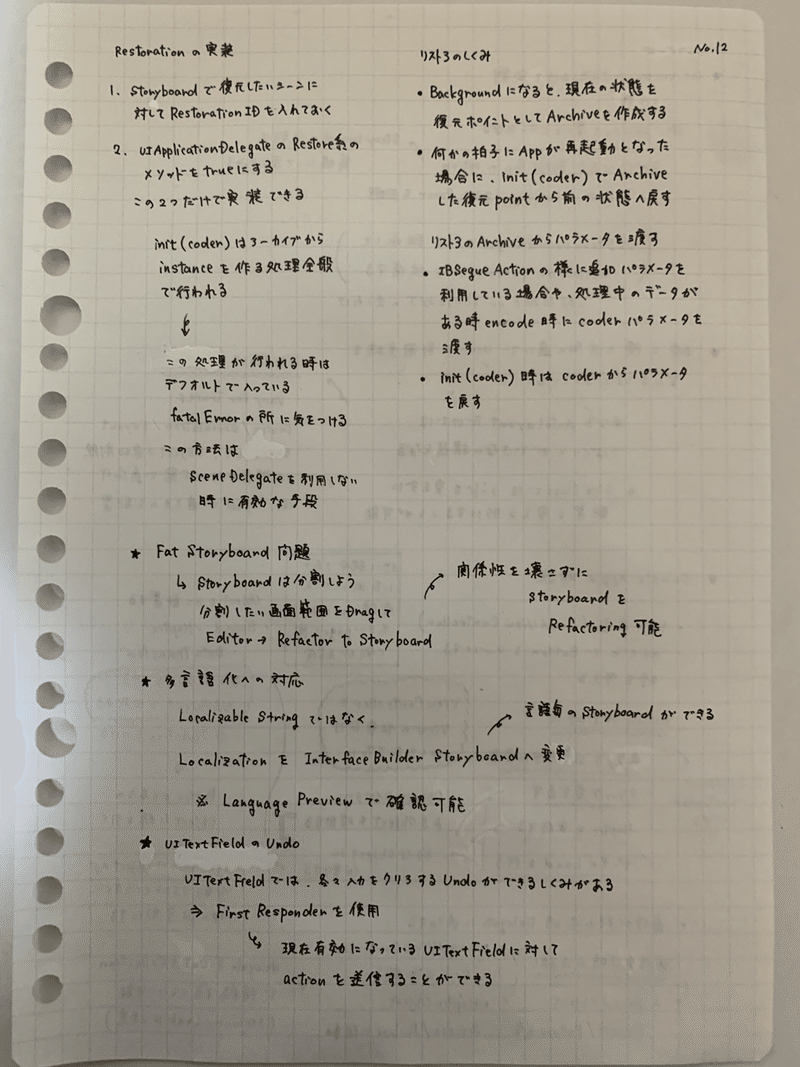 No.12
Restorationの実装
1. Storyboardで復元したいシーンに
対してRestorationIDを入れておく
2. UIApplicationDelegateのRestore系の
メソッドをtrueにする
この2つだけで実装できる
init(coder)はアーカイブから
instanceを作る処理全般
で行われる
↓
この処理が行われる時は
デフォルトで入っている
fatalErrorの所に気をつける
この方法は
SceneDelegateを利用しない
時に有効な手段
リストアのしくみ
• Backgroundになると、現在の状態を
復元ポイントとしてArchiveを作成する
• 何かの拍子にAppが再起動となった
場合に、init(coder)でArchive
した復元pointから前の状態へ戻す
リストアのArchiveからパラメータを渡す
• IBSegueActionの様に追加パラメータを
利用している場合や、処理中のデータが
ある時encode時にcoderパラメータを
渡す
• init(coder)時はcoderからパラメータ
を戻す
★ Fat Storyboard 問題
↳ Storyboardは分割しよう
分割したい画面範囲をDragして
Editor → Refactor to Storyboard
関係性を壊さずに
Storyboardを
Refactoring可能
★ 多言語化への対応
Localizable Stringではなく、
Localizationを Interface Builder Storyboardへ変更
言語毎のStoryboardができる
※ Language Previewで確認可能
★ UITextFieldのUndo
UITextFieldでは、各々入力をクリアするUndoができるしくみがある
⇒ First Responderを使用
↳ 現在有効になっているUITextFieldに対して
actionを送信することができる